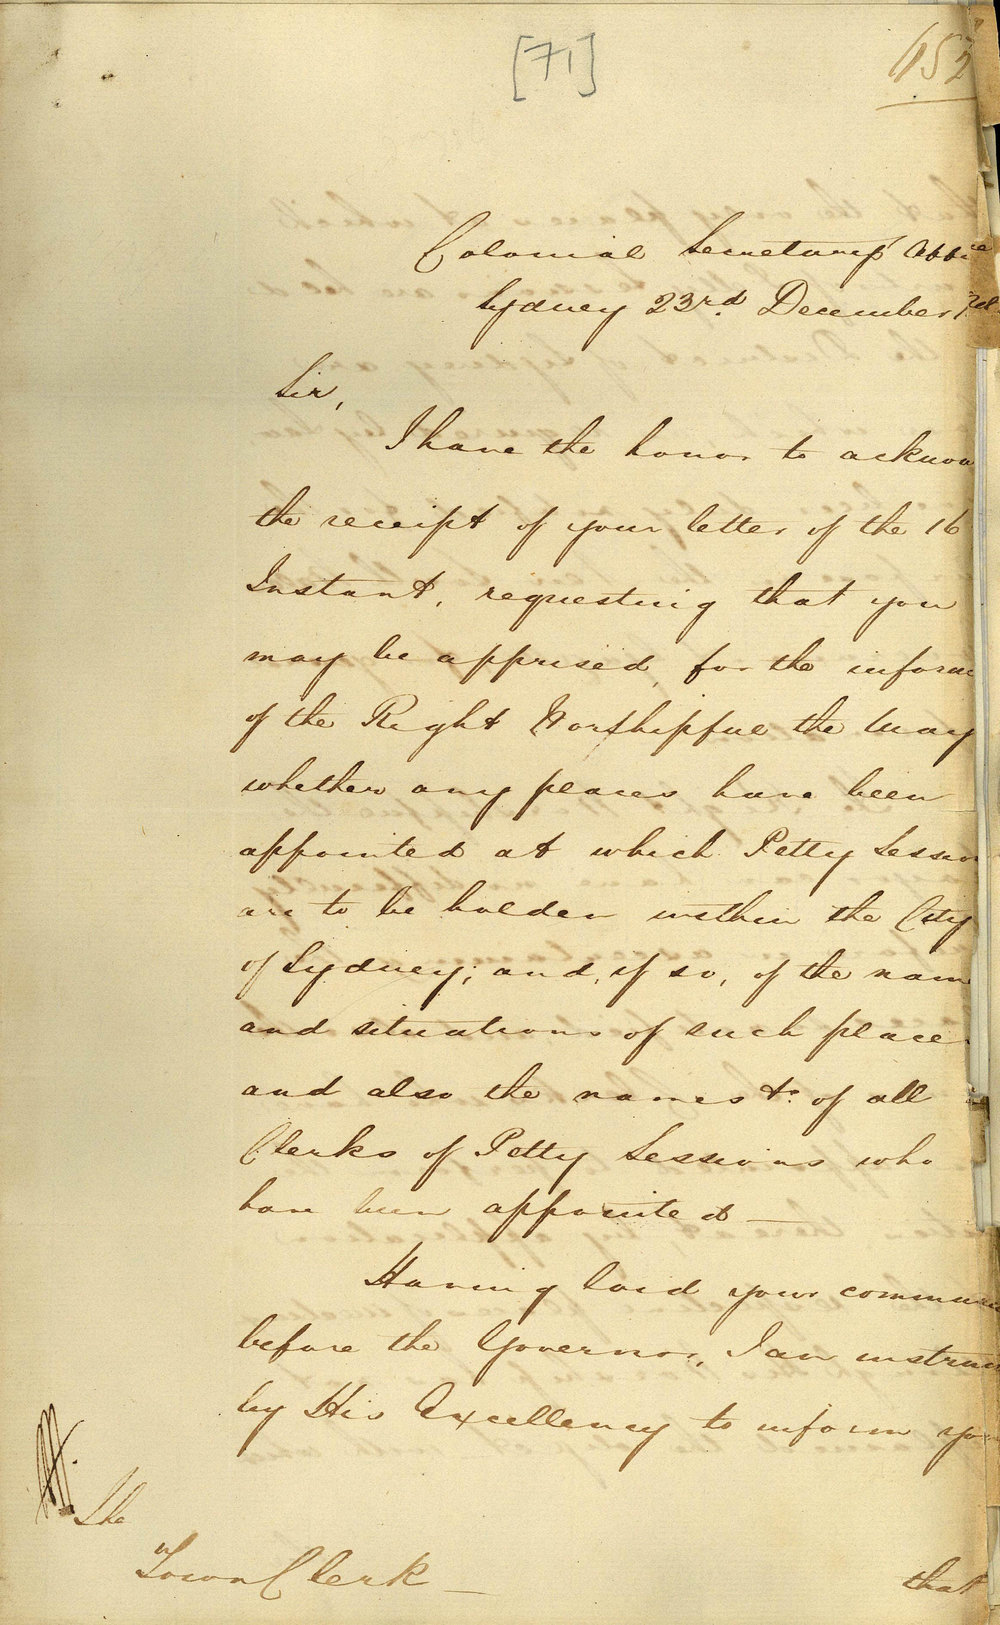 [71]
652
Colonial Secretary's Office
Sydney 23rd December
Sir,
I have the honor to acknow
the receipt of your letter of the 16
Instant, requesting that you
may be apprised, for the inform
of the Right Worshipful the May
whether any places have been
appointed at which Petty Session
are to be holden within the City
of Sydney; and, if so, of the nam
and situations of such place
and also the names &c. of all
Clerks of Petty Sessions who
have been appointed —
Having laid your communi
before the Governor, I am instruc
by His Excellency to inform you
The
Town Clerk —
that